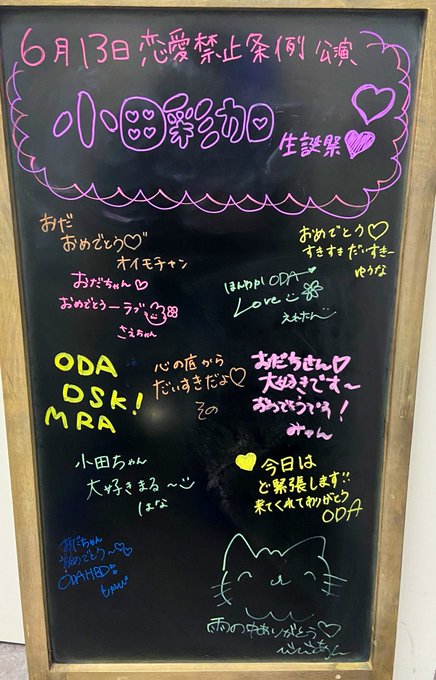 6月13日 恋愛禁止条例 公演
小田彩加 生誕祭♡
おだ
おめでとう♡
オイモチャン
おめでとう♡
すきすきだいすきー
ゆうな
おだちゃん♡
おめでとうーラブ
さえちゃん
ほんわかODA
Love
えれたん
ODA
DSK!
MRA
心の底から
だいすきだよ♡
その
おだちさん♡
大好きです〜
おめでとうございます!
みゃん
小田ちゃん
大好きまる〜
はな
今日は
ど緊張します!!
来てくれてありがとう
ODA
おだちゃん
おめでとう〜♡♡
ODAHBD!
雨の中ありがとう♡